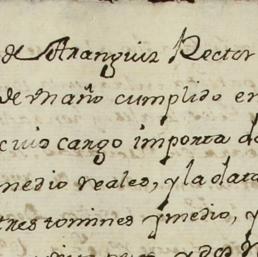 de Aranguiz Rector
de un año cumplido en
cuio cargo importa do
medio reales, y la data
tres tomines y medio, y